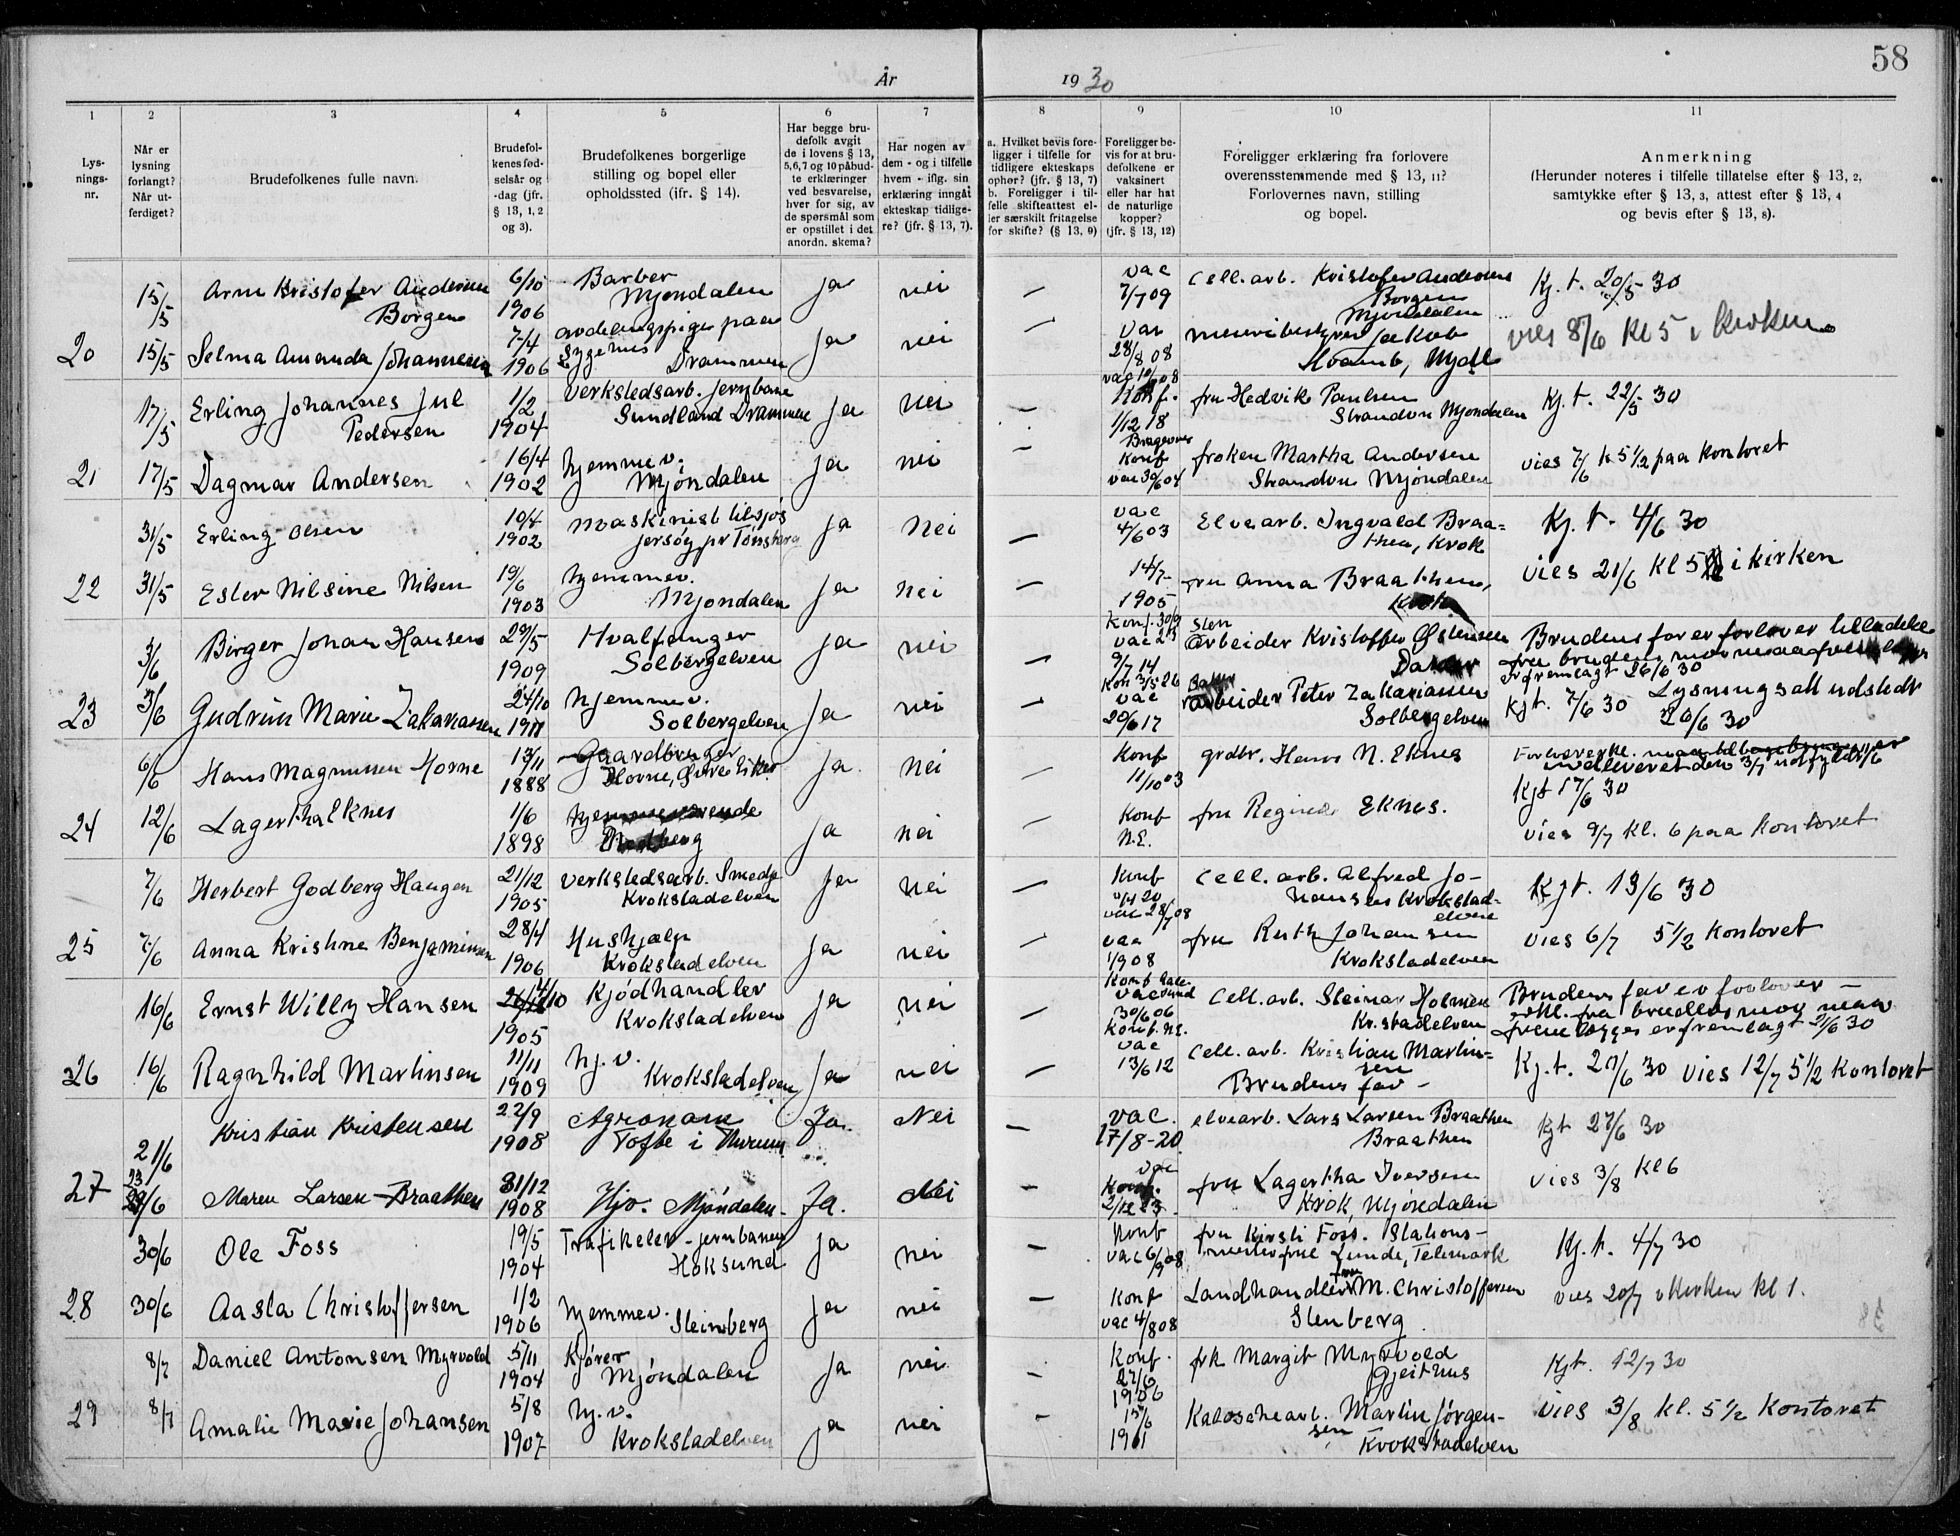 58
År 1930
1 2 3 4 5 6 7 8 9 10 11
Lys-
nings-
nr.
Når er
lysning
forlangt?
Når ut-
ferdiget?
Brudefolkenes fulle navn.
Brudefol-
kenes fød-
selsår og
-dag (jfr.
§ 13, 1, 2
og 3).
Brudefolkenes borgerlige
stilling og bopel eller
opholdssted (ifr. § 14).
Har begge bru-
defolk avgit
de i lovens § 13,
5,6,7 og 10 påbud-
te erklæringer
ved besvarelse,
hver for sig, av
de spørsmål som
er opstillet i det
anordn. skema?
Har nogen av
dem - og i tilfelle
hvem - iflg. sin
erklæring inngåt
ekteskap tidlige-
re? (jfr. § 13, 7).
a. Hvilket bevis fore-
ligger i tilfelle for
tidligere ekteskaps
ophør? (jfr. § 13, 7)
b. Foreligger i til-
felle skifteattest el-
ler særskilt fritagelse
for skifte? (§ 13, 9)
Foreligger be-
vis for at bru-
defolkene er
vaksinert
eller har hat
de naturlige
kopper?
(jfr. § 13, 12)
Foreligger erklæring fra forlovere
overensstemmende med § 13, 11?
Forlovernes navn, stilling
og bopel.
Anmerkning
(Herunder noteres i tilfelle tillatelse efter § 13, 2,
samtykke efter § 13, 3, attest efter § 13, 4
og bevis efter § 13, 8).
15/5 Arne Kristofer Andersen Borgen 6/10 1906 Barber Mjøndalen ja nei — vac 7/7 09 Cell.arb. Kristofer Andersen Borgen Mjøndalen Kj. t. 20/5 30
20 15/5 Selma Amanda Johannesen 7/4 1906 avdelingspige paa Sygehus Drammen ja nei — vac 28/8 08 Jakob Hvamb, Mjdl vies 8/6 kl 5 i kirken
17/5 Erling Johannes Jul Pedersen 1/2 1904 Verkstedsarb. jernbane Sundland Drammen ja nei — Konf. 1/12 18 fru Hedvik Paulsen Strandvn Mjøndalen Kj. t. 22/5 30
21 17/5 Dagmar Andersen 16/4 1902 hjemmev. Mjøndalen ja nei — Konf vac 30/6 04 frøken Martha Andersen Strandvn Mjøndalen vies 7/6 k 5 1/2 paa kontoret
31/5 Erling Olsen 10/4 1902 Maskinist tilsjøs Jersøy pr Tønsberg ja nei — vac 4/6 03 Elvearb. Ingvald Braa-
then, Krok Kj. t. 4/6 30
22 31/5 Ester Nilsine Nilsen 19/6 1903 hjemmev. Mjøndalen ja nei — 14/7 1905 fru Anna Braathen, Krok vies 21/6 kl 5 i kirken
3/6 Birger Johan Hansen 29/5 1909 Hvalfanger Solbergelven ja nei — 9/7 14 arbeider Kristoffer Østensen Brudens far er forlover tilladelse
fra brudens mor maa
er fremlagt 26/6 30
23 3/6 Gudrun Marie Zakariassen 24/10 1911 hjemmev. Solbergelven ja nei — vac 20/6 17 arbeider Peter Zakariassen Solbergelven Kjt. 7/6 30 Lysningsatt udstedt 26/6 30
6/6 Hans Magnussen Horne 13/11 1888 Gaardbruger Horne, Øvre Eiker ja nei — Konf 11/10 03 grdbr. Hans N. Eknes
24 12/6 Lagertha Eknes 1/6 1898 hjemmeværende ja nei Konf N.E. fru Regine Eknes. Kjt 17/6 30
vies 9/7 kl. 6 paa kontoret
7/6 Herbert Godberg Haugen 21/12 1905 Verkstedsarb. Smed Krokstadelven ja nei — Konf vac 28/7 08 Cell. arb. Alfred Jo-
hansen Krokstad-
elven Kjt. 13/6 30
25 7/6 Anna Kristine Benjaminsen 28/4 1906 Hushjælp Krokstadelven ja nei — vac 1/9 08 fru Ruth Johansen Krokstadelven vies 6/7 5 1/2 kontoret
16/6 Ernst Willy Hansen 1905 Kjødhandler Krokstadelven ja nei — vac 30/6 06 Cell. arb. Steinar Holmen Kr.stadelven Brudens far er forlover —
erkl. fra brudens mor maa
fremlægges er fremlagt 21/6 30
26 16/6 Ragnhild Martinsen 11/11 1909 hj. v. Krokstadelven Ja nei — vac 13/6 12 Cell. arb. Kristian Martin-
sen Brudens far — Kj. t. 27/6 30 vies 12/7 5 1/2 kontoret
21/6 Kristian Kristensen 22/9 1908 Agronom Tofte i Hurum Ja. Nei — vac. 17/8-20 elvearb. Lars Larsen Braathen Braathen Kjt 27/6 30
27 Maren Larsen Braathen 31/12 1908 Hjv. Mjøndalen Ja. Nei — vac Konf. fru Lagertha Iversen Krok, Mjøndalen vies 3/8 kl 6
30/6 Ole Foss 19/5 1904 Trafikelev - jernbanen Hoksund ja nei — Konf vac 6/9 08 fru Kirsti Foss. Stations-
mesterfrue Lunde, Telemark Kj. t. 4/7 30
28 30/6 Aasta Christoffersen 1/2 1906 hjemmev. Steinberg ja nei — Konf vac 4/8 08 Landhandler fru M. Christoffersen Stenberg vies 20/7 i kirken kl 1.
8/7 Daniel Antonsen Myrvold 5/11 1904 Kjører Mjøndalen ja nei — Konf. 27/6 1906 frk Margit Myrvold Gjeithus Kjt. 12/7 30
29 8/7 Amalie Marie Johansen 5/8 1907 hj. v. Krokstadelven ja nei — 15/6 1911 Kaloschearb. Martin Jørgen-
sen Krokstadelven vies 3/8 kl. 5 1/2 kontoret